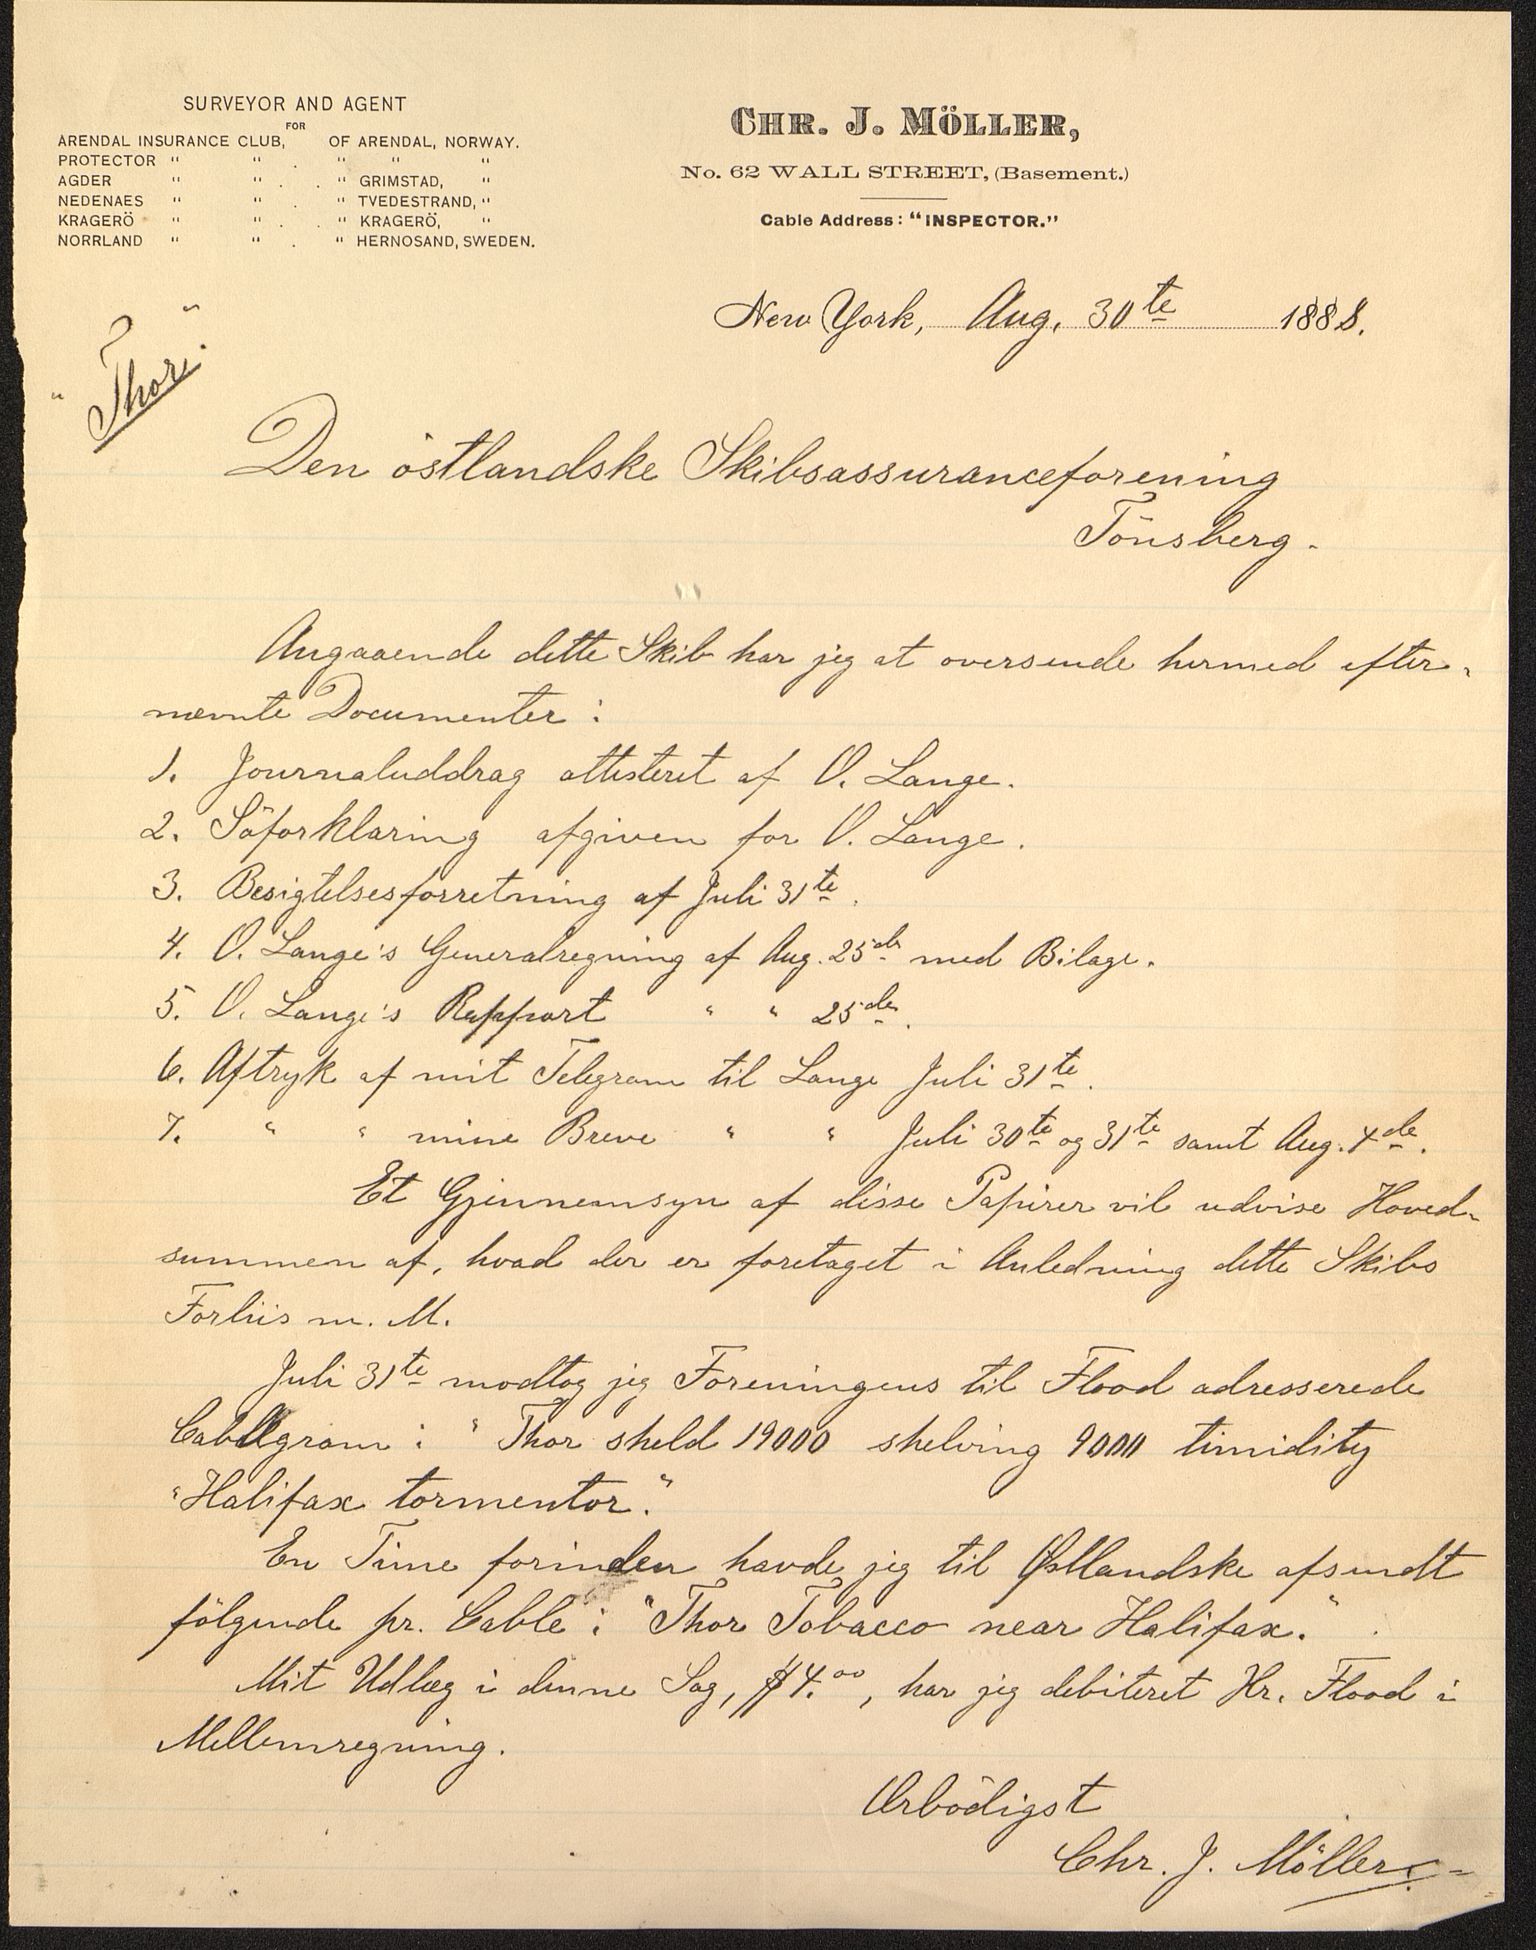 SURVEYOR AND AGENT
FOR
ARENDAL INSURANCE CLUB, OF ARENDAL, NORWAY.
PROTECTOR " " . " " "
AGDER " " . . " GRIMSTAD, "
NEDENAES " " . " TVEDESTRAND, "
KRAGERÖ " " . " KRAGERÖ, "
NORRLAND " " . " HERNOSAND, SWEDEN.
CHR. J. MÖLLER,
No. 62 WALL STREET, (Basement.)
Cable Address: "INSPECTOR."
New York, Aug. 30te 1888.
"Thor"
Den östlandske Skibsassuranceforening
Tönsberg.
Angaaende dette Skib har jeg at oversende hermed efter-
nævnte Documenter:
1. Journaluddrag attesteret af O. Lange.
2. Söforklaring afgiven for O. Lange.
3. Besigtelsesforretning af Juli 31te.
4. O. Lange's Generalregning af Aug. 25de med Bilage.
5. O. Lange's Rapport " " 25de.
6. Aftryk af mit Telegram til Lange Juli 31te.
7. " " mine Breve " " Juli 30te og 31te samt Aug. 4de.
Et Gjennemsyn af disse Papirer vil udvise Hoved-
summen af, hvad der er foretaget i Anledning dette Skibs
Forliis m. M.
Juli 31te modtog jeg Foreningens til Flood adresserede
Cabellgram: "Thor sheld 19000 shelving 9000 timidity
"Halifax tormentor."
En Time forinden havde jeg til Østlandske afsendt
fölgende pr. Cable: "Thor Tobacco near Halifax."
Mit Udlæg i denne Sag, $4.00, har jeg debiteret Hr. Flood i
Mellemregning.
Ærbödigst
Chr. J. Möller.